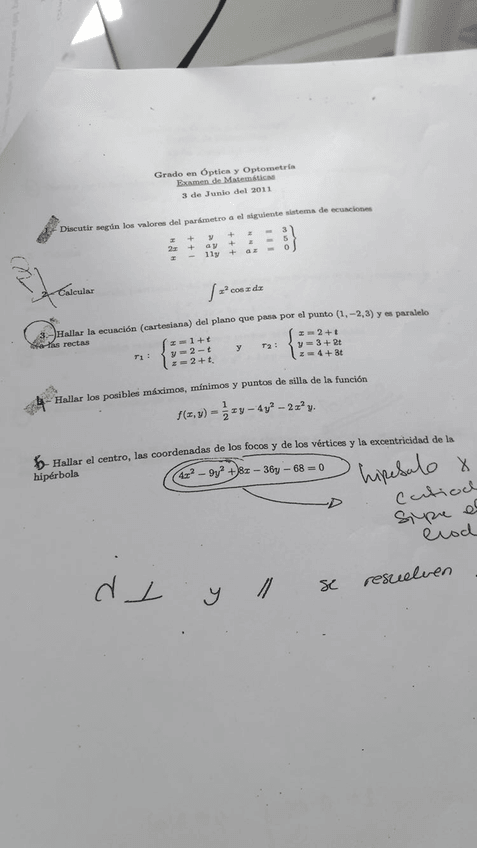 Grado en Óptica y Optometría
Examen de Matemáticas
3 de Junio del 2011
- Discutir según los valores del parámetro a el siguiente sistema de ecuaciones
x + y + z = 3
2x + ay + z = 5
x - 11y + az = 0
2.- Calcular
∫ x² cos x dx
3.- Hallar la ecuación (cartesiana) del plano que pasa por el punto (1, −2, 3) y es paralelo
a las rectas
r₁ : { x = 1 + t y r₂ : { x = 2 + t
y = 2 − t y = 3 + 2t
z = 2 + t. z = 4 + 3t
4- Hallar los posibles máximos, mínimos y puntos de silla de la función
f(x, y) = 1/2 xy − 4y² − 2x² y.
5- Hallar el centro, las coordenadas de los focos y de los vértices y la excentricidad de la
hipérbola
4x² − 9y² + 8x − 36y − 68 = 0
x
y // se resuelven